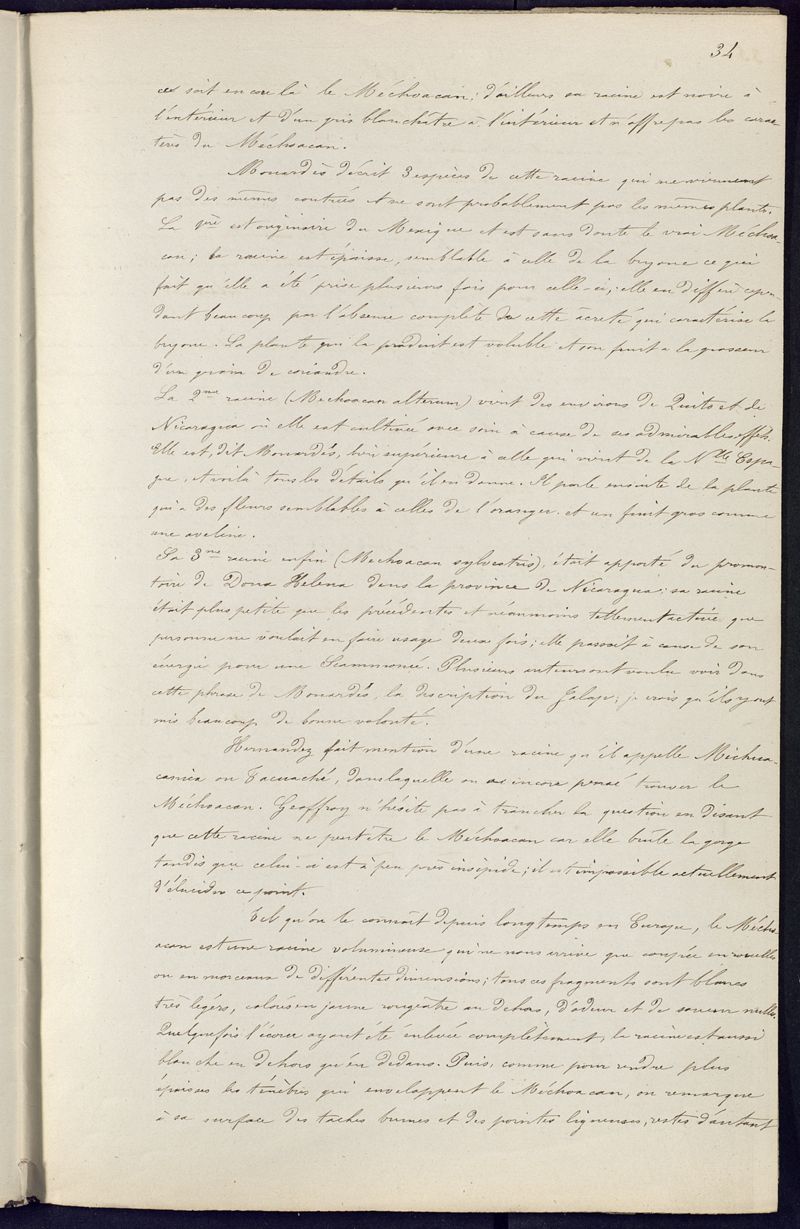 34
ces soit encore là le Méchoacan; d'ailleurs sa racine est noire à
l'extérieur et d'un gris blanchâtre à l'intérieur et n'offre pas les carac-
tères du Méchoacan.
Monardès décrit 3 espèces de cette racine qui ne viennent
pas des mêmes contrées et ne sont probablement pas les mêmes plantes.
La 1ère est originaire du Mexique et est sans doute le vrai Méchoa-
can; la racine est épaisse, semblable à celle de la bryone ce qui
fait qu'elle a été prise plusieurs fois pour celle-ci; elle en diffère cepen-
dant beaucoup par l'absence complète de cette âcreté qui caractérise la
bryone. La plante qui la produit est voluble et son fruit a la grosseur
d'un grain de coriandre.
La 2me racine (Mechoacan alterum) vient des environs de Quito et de
Nicaragua où elle est cultivée avec soin à cause de ses admirables effets.
Elle est, dit Monardès, bien supérieure à celle qui vient de la Nlle Espa-
gne, et voilà tous les détails qu'il en donne. Il parle ensuite de la plante
qui a des fleurs semblables à celles de l'oranger et un fruit gros comme
une aveline.
La 3me racine enfin (Mechoacan sylvestris), était apporté du promon-
toire de Dona Helena dans la province de Nicaragua; sa racine
était plus petite que les précédentes et néanmoins tellement active que
personne ne voulait en faire usage deux fois; elle passait à cause de son
énergie pour une Scammonée. Plusieurs auteurs ont voulu voir dans
cette phrase de Monardès, la description du Jalap; je crois qu'ils y ont
mis beaucoup de bonne volonté.
Hernandez fait mention d'une racine qu'il appelle Michua-
canica ou Tacuaché, dans laquelle on a encore pensé trouver le
Méchoacan. Geoffroy n'hésite pas à trancher la question en disant
que cette racine ne peut être le Méchoacan car elle brûle la gorge
tandis que celui-ci est à peu près insipide; il est impossible actuellement
d'élucider ce point.
Tel qu'on le connaît depuis longtemps en Europe, le Mécho-
acan est une racine volumineuse qui ne nous arrive que coupée en rouelles
ou en morceaux de différentes dimensions; tous ces fragments sont blancs
très légers, colorés en jaune rougeâtre au dehors, d'odeur et de saveur nulles.
Quelquefois l'écorce ayant été enlevée complètement, la racine est aussi
blanche en dehors qu'en dedans. Puis, comme pour rendre plus
épaisses les ténèbres qui enveloppent le Méchoacan, on remarque
à sa surface des taches brunes et des pointes ligneuses, restes d'autant